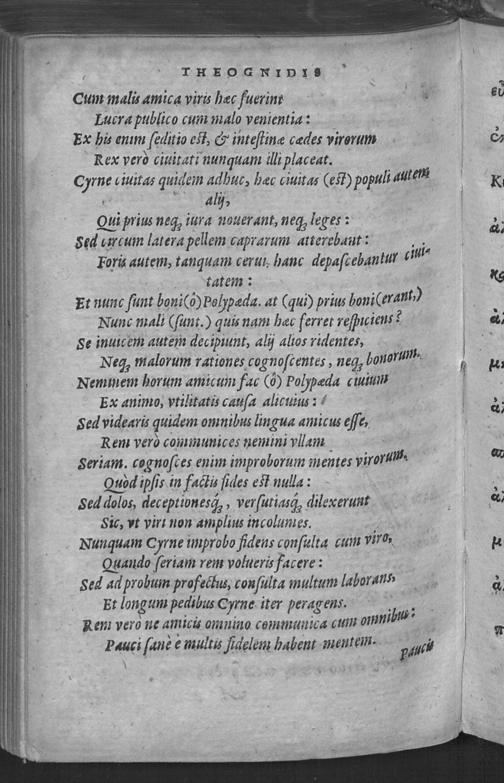 THEOGNIDIS
Cum malis amica viris hæc fuerint
Lucra publico cum malo venientia:
Ex his enim ſeditio eſt, & inteſtinæ cædes virorum
Rex verò ciuitati nunquam illi placeat.
Cyrne ciuitas quidem adhuc, hæc ciuitas (eſt) populi autem
alij,
Qui prius neqꝫ iura nouerant, neqꝫ leges:
Sed circum latera pellem caprarum atterebant:
Foris autem, tanquam cerui, hanc depaſcebantur ciui-
tatem:
Et nunc ſunt boni(ô)Polypæda. at (qui) prius boni(erant,)
Nunc mali (ſunt.) quis nam hæc ferret reſpiciens?
Se inuicem autem decipiunt, alij alios ridentes,
Neqꝫ malorum rationes cognoſcentes, neqꝫ bonorum.
Neminem horum amicum fac (ô) Polypæda ciuium
Ex animo, vtilitatis cauſa alicuius:
Sed videaris quidem omnibus lingua amicus eſſe,
Rem verò communices nemini vllam
Seriam. cognoſces enim improborum mentes virorum,
Quòd ipſis in factis fides eſt nulla:
Sed dolos, deceptionesq́ꝫ, verſutiasq́ꝫ dilexerunt
Sic, vt viri non amplius incolumes.
Nunquam Cyrne improbo fidens conſulta cum viro,
Quando ſeriam rem volueris facere:
Sed ad probum profectus, conſulta multum laborans,
Et longum pedibus Cyrne iter peragens.
Rem verò ne amicis omnino communica cum omnibus:
Pauci ſanè è multis fidelem habent mentem.
Paucis